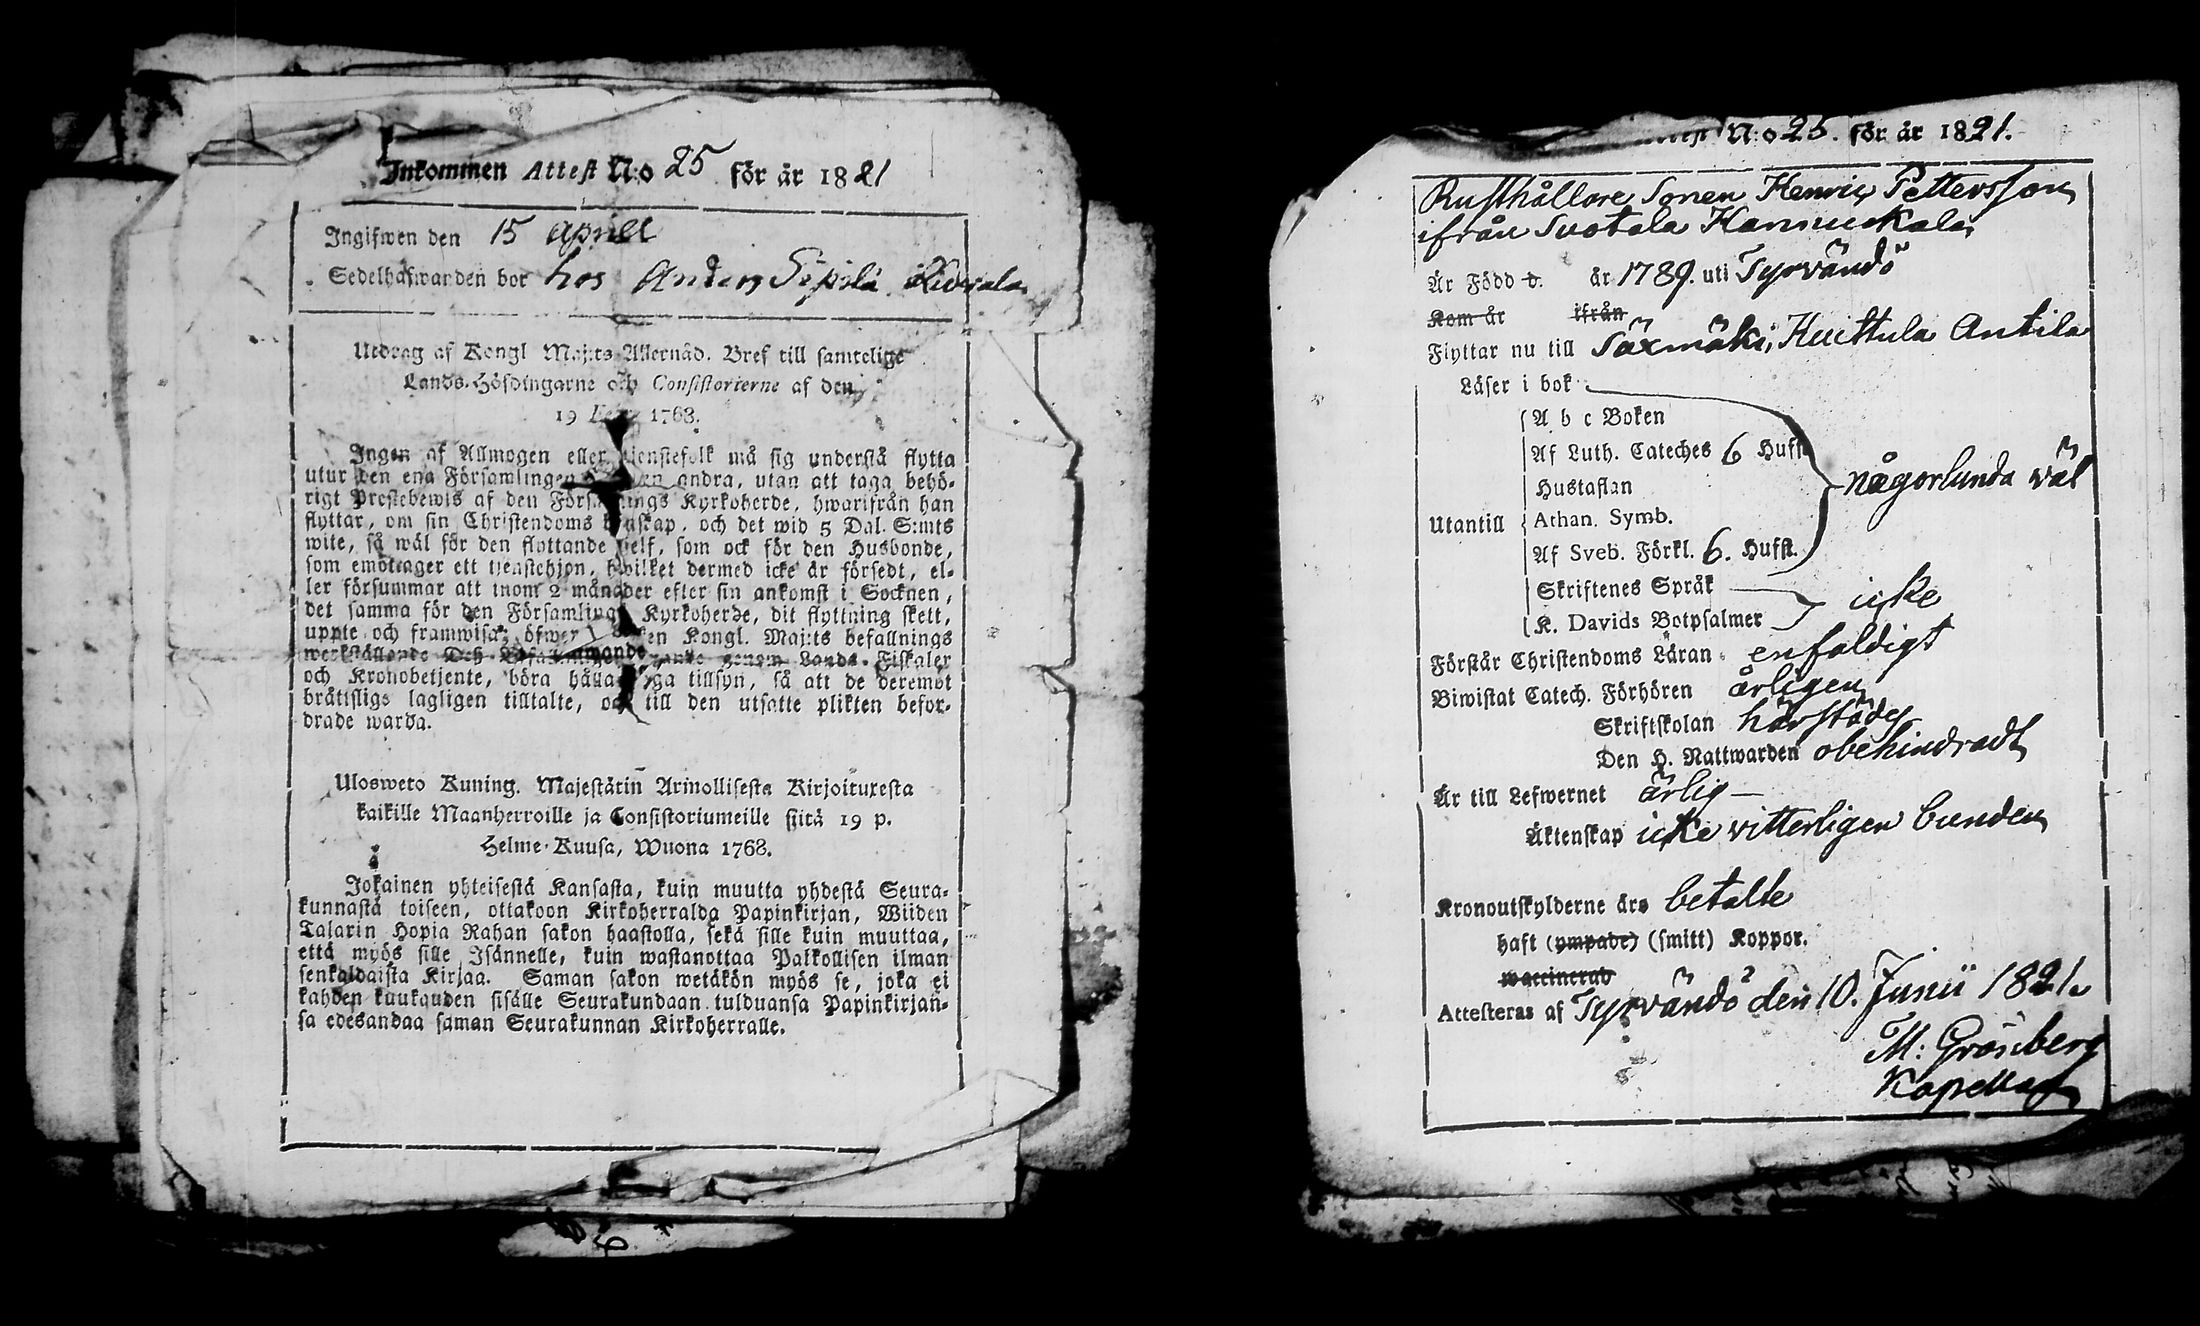 Inkommen Attest N:o 25 för år 1821
Ingifwen den 15 Aprill
Sedelhafwanden bor hos Anders Sipilä
Utdrag af Kongl Maj:ts Allernåd. Bref till samtelige
Lands-Höfdingarne och Consistorierne af den
19 1768.
Ingen af Allmogen eller tjenstefolk må sig understå flytta
utur den ena Församlingen andra, utan att taga behö-
rigt Prestebewis af den Församlings Kyrkoherde, hwarifrån han
flyttar, om sin Christendoms kunskap, och det wid 5 Dal. S:mts
wite, så wäl för den flyttande self, som ock för den Husbonde,
som emottager ett tjenstehjon, hwilket dermed icke är försedt, el-
ler försummar att inom 2 månader efter sin ankomst i Socknen,
det samma för den Församlings Kyrkoherde, dit flyttning skett,
uppte och framwisa; öfwer en Kongl. Maj:ts befallnings
werkställande genom Lands-Fiskaler
och Kronobetjente, böra hålla noga tillsyn, så att de deremot
bråtisligs lagligen tilltalte, och till den utsatte plikten befor-
drade warda.
Ulosweto Kuning. Majestätin Armollisesta Kirjoituxesta
kaikille Maanherroille ja Consistoriumeille siitä 19 p.
Helme-Kuusa, Wuona 1768.
Jokainen yhteisestä Kansasta, kuin muutta yhdestä Seura-
kunnasta toiseen, ottakoon Kirkoherralda Papinkirjan, Wiiden
Talarin Hopia Rahan sakon haastolla, sekä sille kuin muuttaa,
että myös sille Isännelle, kuin wastanottaa Palkollisen ilman
senkaldaista Kirjaa. Saman sakon wetäkön myös se, joka ei
kahden kuukauden sisälle Seurakundaan tulduansa Papinkirjan-
sa edesandaa saman Seurakunnan Kirkoherralle.
N:o 25. för år 1821.
Rusthållare Sonen Henric Pettersson
ifrån Suotala Hannukala
Är Född d. år 1789. uti Tyrvändö
Kom år ifrån
Flyttar nu till Säxmäki, Huittula Antila
Läser i bok
A b c Boken
Af Luth. Cateches 6 Hufst
Hustaflan
någorlunda väl
Utantill Athan. Symb.
Af Sveb. Förkl. 6. Hufst.
Skriftenes Språk
icke
K. Davids Botpsalmer
Förstår Christendoms Läran enfaldigt
Biwistat Catech. Förhören årligen
Skriftskolan härstädes
Den H. Nattwarden obehindradt
Är till Lefwernet ärlig
Äktenskap icke vitterligen bunden
Kronoutskylderne äro betalte
haft (ympade) (smitt) Koppor.
waccinerad
Attesteras af Tyrvändö den 10. Junii 1821.
M: Grönberg
Kapellan